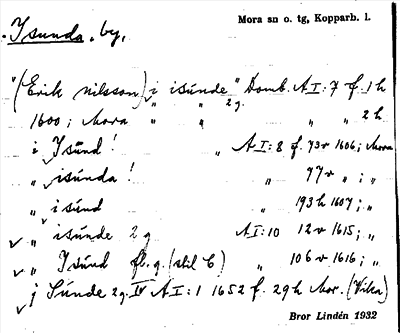 Isunda, by.
Mora sn o. tg, Kopparb. l.
"(Erik Nilsson) i isúnde" Domb. A I: 7 f. 1 h
1600; Mora " " 2 g. " " 2 h
i Isúnd! " A I: 8 f. 73 v 1606; Mora
" isúnda! " 77 v " ; "
" isúnd " 193 h 1607; "
" isúnde 2 g A I: 10 12 v 1615; "
" Isúnd fl. g. (stil C) " 106 v 1616; "
j Súnde 2 g. IV A I: 1 1652 f. 29 h Mor. (Vika)
Bror Lindén 1932